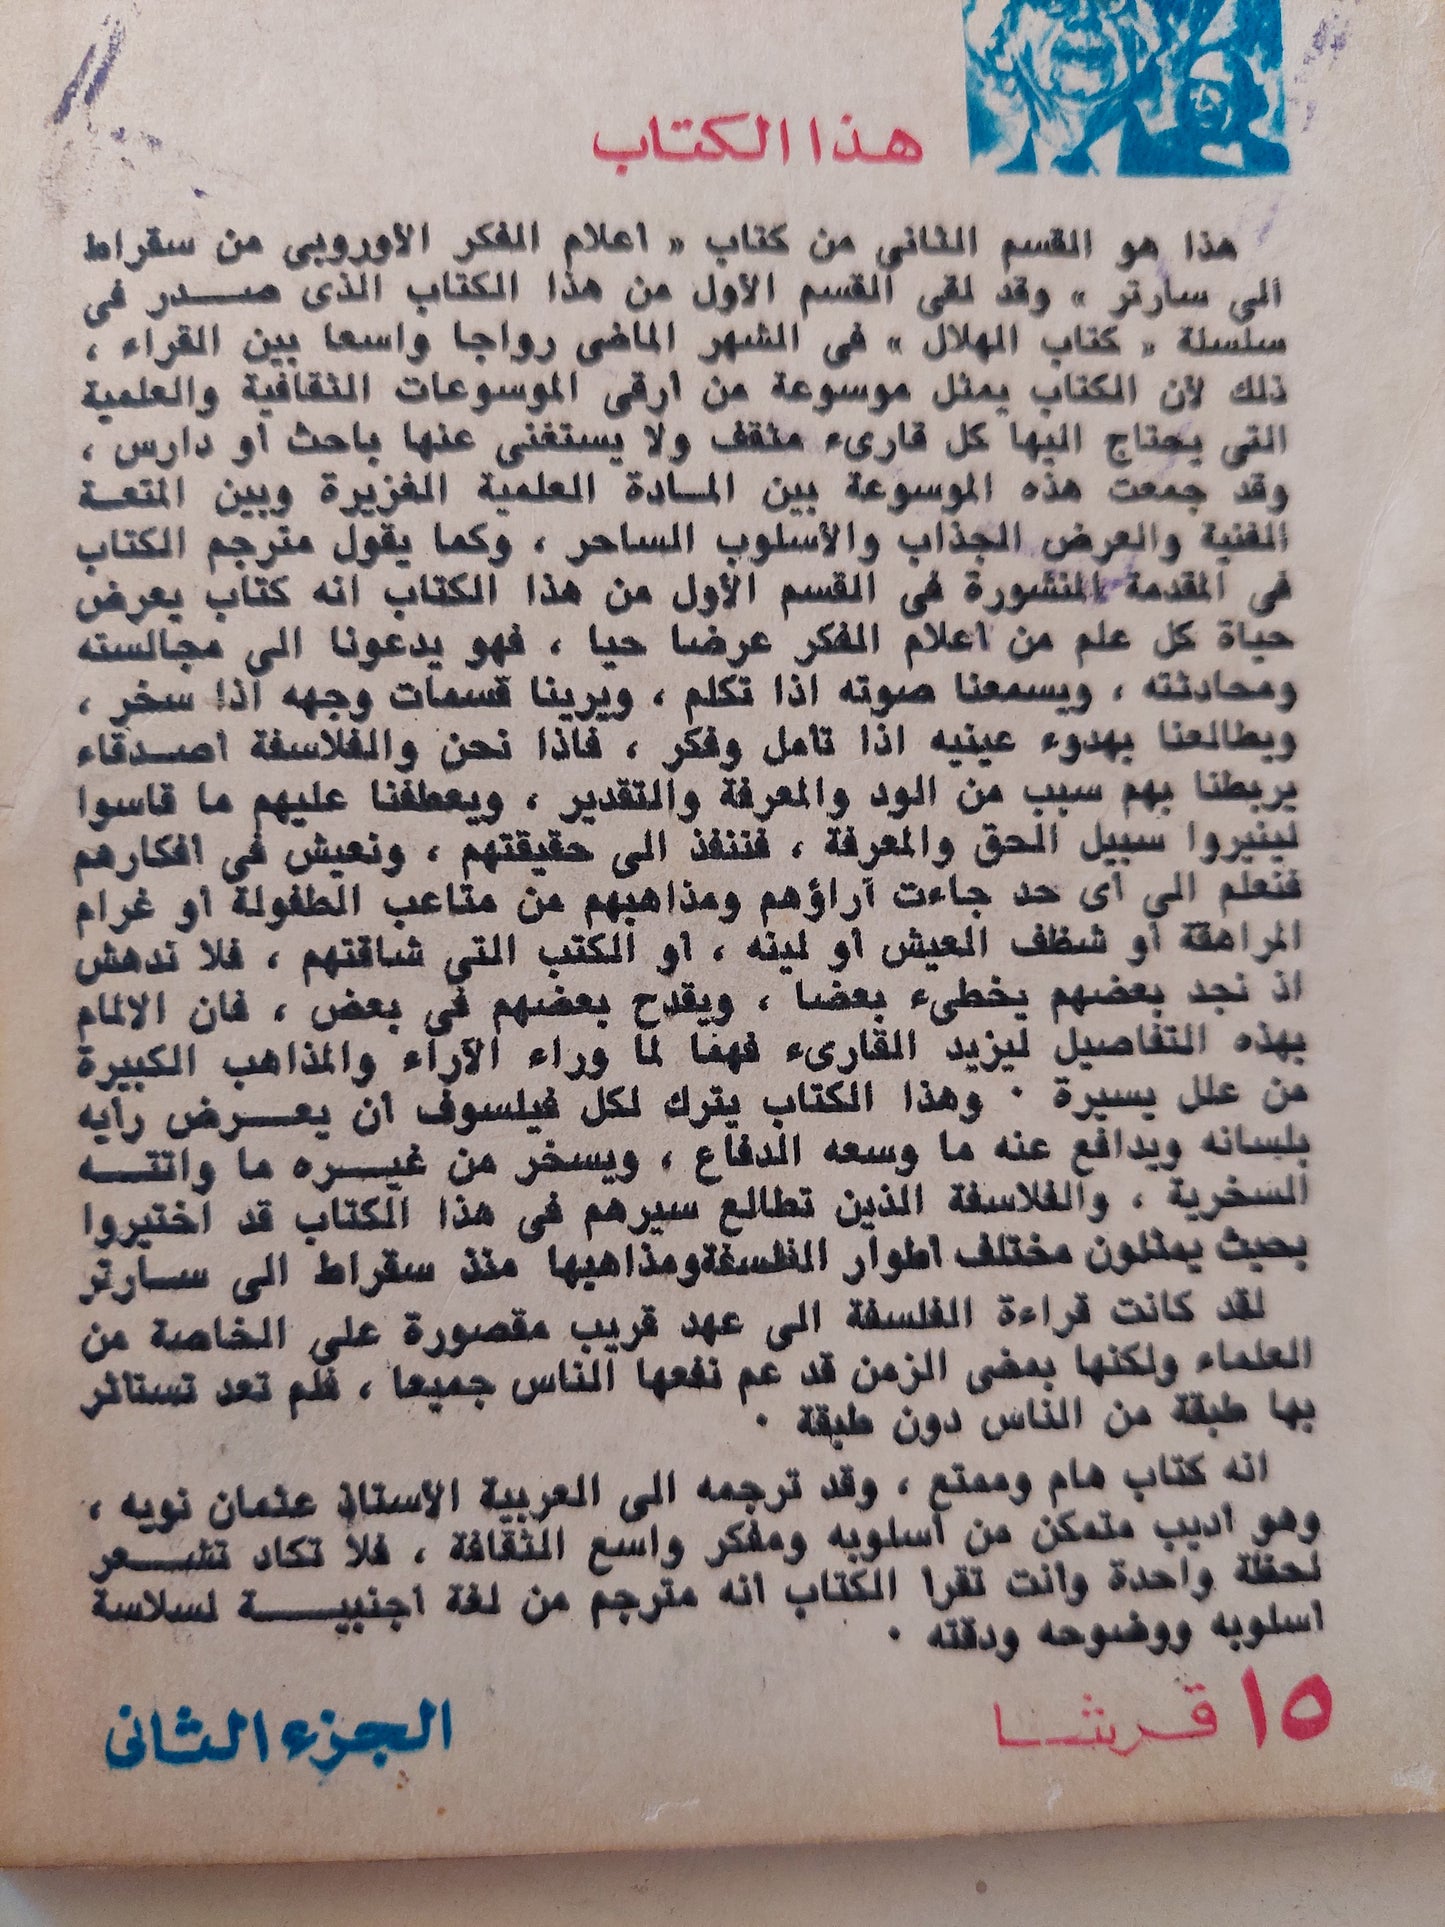 هذا الكتاب
هذا هو القسم الثانى من كتاب « أعلام الفكر الأوروبى من سقراط
الى سارتر » وقد لقى القسم الأول من هذا الكتاب الذى صدر فى
سلسلة « كتاب الهلال » فى الشهر الماضى رواجا واسعا بين القراء ،
ذلك لأن الكتاب يمثل موسوعة من أرقى الموسوعات الثقافية والعلمية
التى يحتاج اليها كل قارىء مثقف ولا يستغنى عنها باحث أو دارس ،
وقد جمعت هذه الموسوعة بين المادة العلمية الغزيرة وبين المتعة
الفنية والعرض الجذاب والأسلوب الساحر ، وكما يقول مترجم الكتاب
فى المقدمة المنشورة فى القسم الأول من هذا الكتاب انه كتاب يعرض
حياة كل علم من أعلام الفكر عرضا حيا ، فهو يدعونا الى مجالسته
ومحادثته ، ويسمعنا صوته اذا تكلم ، ويرينا قسمات وجهه اذا سخر ،
ويطالعنا بهدوء عينيه اذا تأمل وفكر ، فاذا نحن والفلاسفة أصدقاء
يربطنا بهم سبب من الود والمعرفة والتقدير ، ويعطفنا عليهم ما قاسوا
لينيروا سبيل الحق والمعرفة ، فتنفذ الى حقيقتهم ، ونعيش فى افكارهم
فنعلم الى أى حد جاءت آراؤهم ومذاهبهم من متاعب الطفولة أو غرام
المراهقة أو شظف العيش أو لينه ، أو الكتب التى شاقتهم ، فلا ندهش
اذ نجد بعضهم يخطىء بعضا ، ويقدح بعضهم فى بعض ، فان الالمام
بهذه التفاصيل ليزيد القارىء فهما لما وراء الآراء والمذاهب الكبيرة
من علل يسيرة ٠ وهذا الكتاب يترك لكل فيلسوف أن يعرض رأيه
بلسانه ويدافع عنه ما وسعه الدفاع ، ويسخر من غيره ما واتته
السخرية ، والفلاسفة الذين تطالع سيرهم فى هذا الكتاب قد اختيروا
بحيث يمثلون مختلف أطوار الفلسفة ومذاهبها منذ سقراط الى سارتر
لقد كانت قراءة الفلسفة الى عهد قريب مقصورة على الخاصة من
العلماء ولكنها بمضى الزمن قد عم نفعها الناس جميعا ، فلم تعد تستأثر
بها طبقة من الناس دون طبقة ٠
انه كتاب هام وممتع ، وقد ترجمه الى العربية الأستاذ عثمان نويه ،
وهو أديب متمكن من أسلوبه ومفكر واسع الثقافة ، فلا تكاد تشعر
لحظة واحدة وأنت تقرأ الكتاب أنه مترجم من لغة أجنبية لسلاسة
أسلوبه ووضوحه ودقته ٠
١٥ قرشا
الجزء الثانى